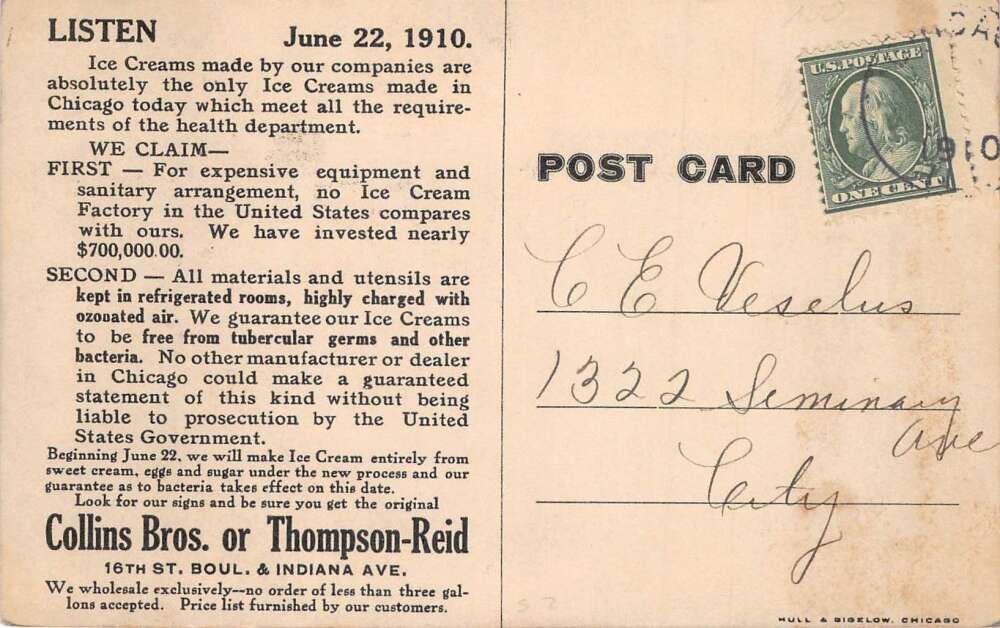 LISTEN
June 22, 1910.
Ice Creams made by our companies are
absolutely the only Ice Creams made in
Chicago today which meet all the require-
ments of the health department.
WE CLAIM—
FIRST — For expensive equipment and
sanitary arrangement, no Ice Cream
Factory in the United States compares
with ours. We have invested nearly
$700,000.00.
SECOND — All materials and utensils are
kept in refrigerated rooms, highly charged with
ozonated air. We guarantee our Ice Creams
to be free from tubercular germs and other
bacteria. No other manufacturer or dealer
in Chicago could make a guaranteed
statement of this kind without being
liable to prosecution by the United
States Government.
Beginning June 22, we will make Ice Cream entirely from
sweet cream, eggs and sugar under the new process and our
guarantee as to bacteria takes effect on this date.
Look for our signs and be sure you get the original
Collins Bros. or Thompson-Reid
16TH ST. BOUL. & INDIANA AVE.
We wholesale exclusively--no order of less than three gal-
lons accepted. Price list furnished by our customers.
POST CARD
U.S. POSTAGE
ONE CENT
1910
C E Veselus
1322 Seminary
Ave
City
HULL & BIGELOW. CHICAGO